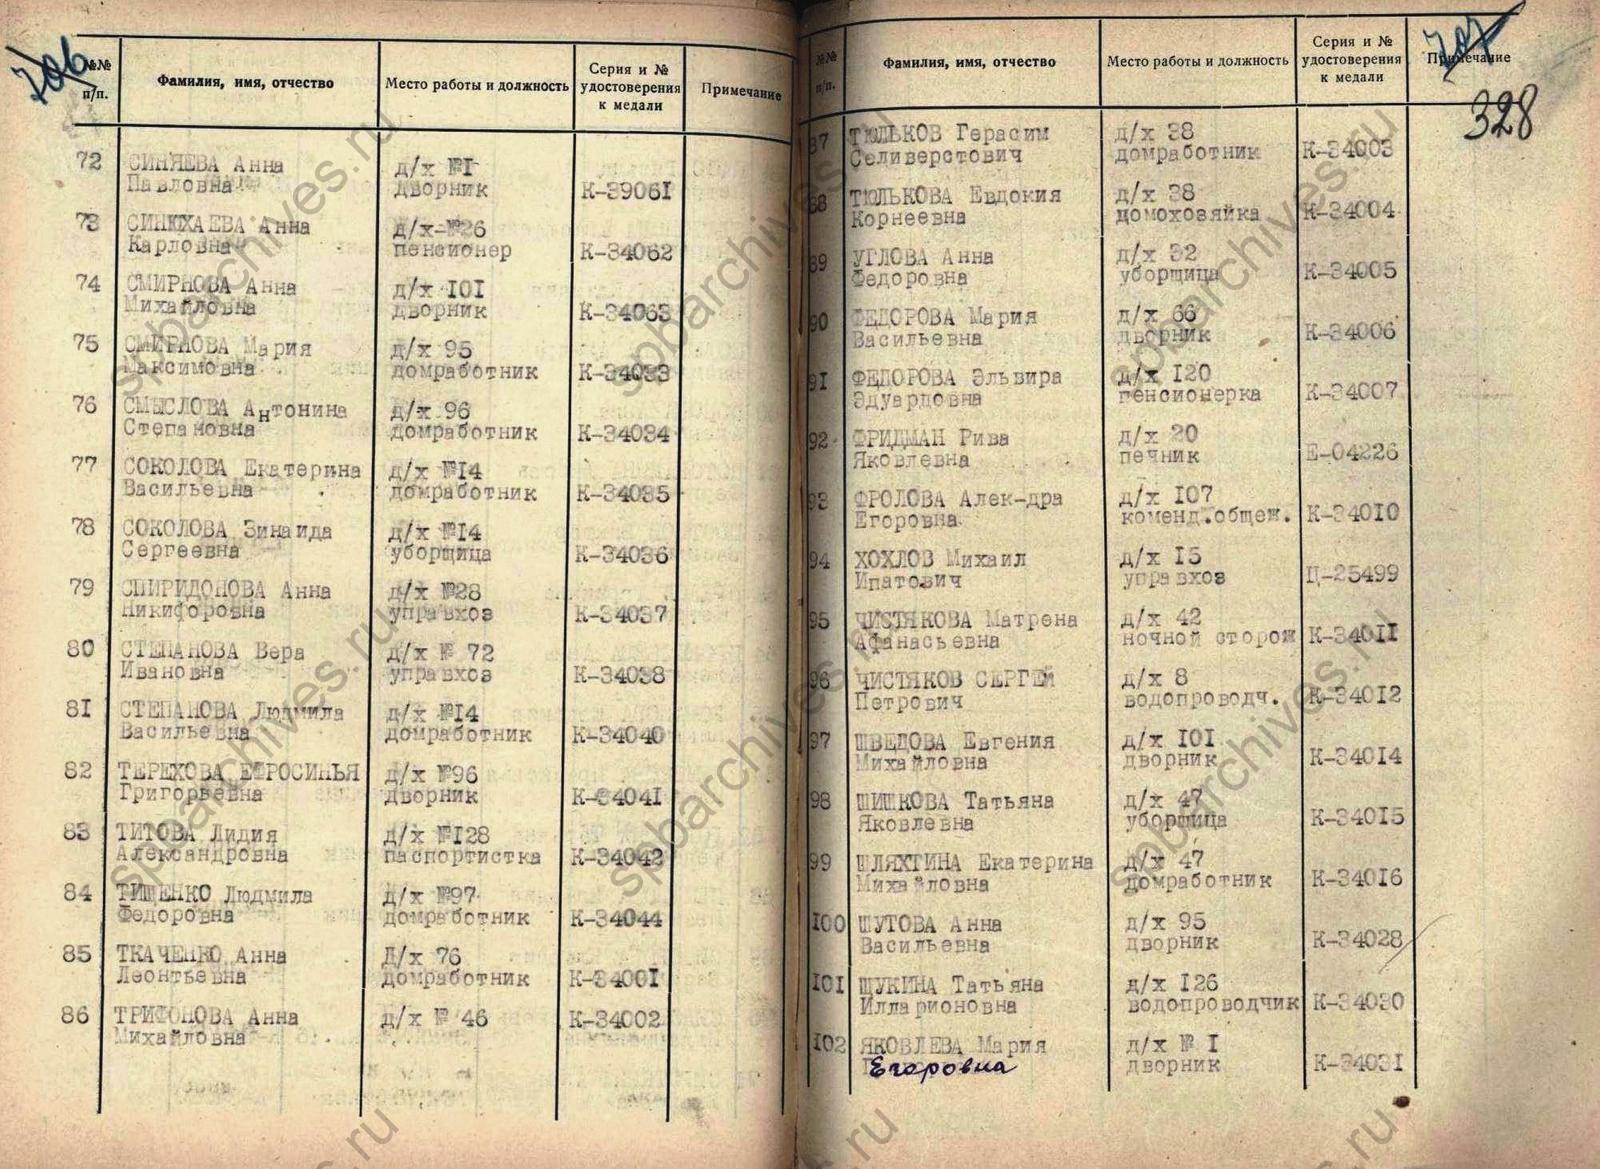 706
№№ п/п.
Фамилия, имя, отчество
Место работы и должность
Серия и № удостоверения к медали
Примечание
72 СИНЯЕВА Анна д/х №1
Павловна дворник К-39061
73 СИНЮХАЕВА Анна д/х-№26
Карловна пенсионер К-34062
74 СМИРНОВА Анна д/х 101
Михайловна дворник К-34063
75 СМИРНОВА Мария д/х 95
Максимовна домработник К-34033
76 СМЫСЛОВА Антонина д/х 96
Степановна домработник К-34034
77 СОКОЛОВА Екатерина д/х №14
Васильевна домработник К-34035
78 СОКОЛОВА Зинаида д/х №14
Сергеевна уборщица К-34036
79 СПИРИДОНОВА Анна д/х №28
Никифоровна управхоз К-34037
80 СТЕПАНОВА Вера д/х № 72
Ивановна управхоз К-34038
81 СТЕПАНОВА Людмила д/х №14
Васильевна домработник К-34040
82 ТЕРЕХОВА ЕФРОСИНЬЯ д/х №96
Григорьевна дворник К-34041
83 ТИТОВА Лидия д/х №128
Александровна паспортистка К-34042
84 ТИЩЕНКО Людмила д/х №97
Федоровна домработник К-34044
85 ТКАЧЕНКО Анна Д/х 76
Леонтьевна домработник К-34001
86 ТРИФОНОВА Анна д/х № 46 К-34002
Михайловна
707
328
№№ п/п.
Фамилия, имя, отчество
Место работы и должность
Серия и № удостоверения к медали
Примечание
87 ТЮЛЬКОВ Герасим д/х 38
Селиверстович домработник К-34003
88 ТЮЛЬКОВА Евдокия д/х 38
Корнеевна домохозяйка К-34004
89 УГЛОВА Анна д/х 32
Федоровна уборщица К-34005
90 ФЕДОРОВА Мария д/х 66
Васильевна дворник К-34006
91 ФЕДОРОВА Эльвира д/х 120
Эдуардовна пенсионерка К-34007
92 ФРИДМАН Рива д/х 20
Яковлевна печник Е-04226
93 ФРОЛОВА Алек-дра д/х 107
Егоровна коменд.общеж. К-34010
94 ХОХЛОВ Михаил д/х 15
Ипатович управхоз Ц-25499
95 ЧИСТЯКОВА Матрена д/х 42
Афанасьевна ночной сторож К-34011
96 ЧИСТЯКОВ СЕРГЕЙ д/х 8
Петрович водопроводч. К-34012
97 ШВЕДОВА Евгения д/х 101
Михайловна дворник К-34014
98 ШИШКОВА Татьяна д/х 47
Яковлевна уборщица К-34015
99 ШЛЯХТИНА Екатерина д/х 47
Михайловна домработник К-34016
100 ШУТОВА Анна д/х 95
Васильевна дворник К-34028
101 ЩУКИНА Татьяна д/х 126
Илларионовна водопроводчик К-34030
102 ЯКОВЛЕВА Мария д/х № 1
Егоровна дворник К-34031
spbarchives.ru
spbarchives.ru
spbarchives.ru
spbarchives.ru
spbarchives.ru
spbarchives.ru